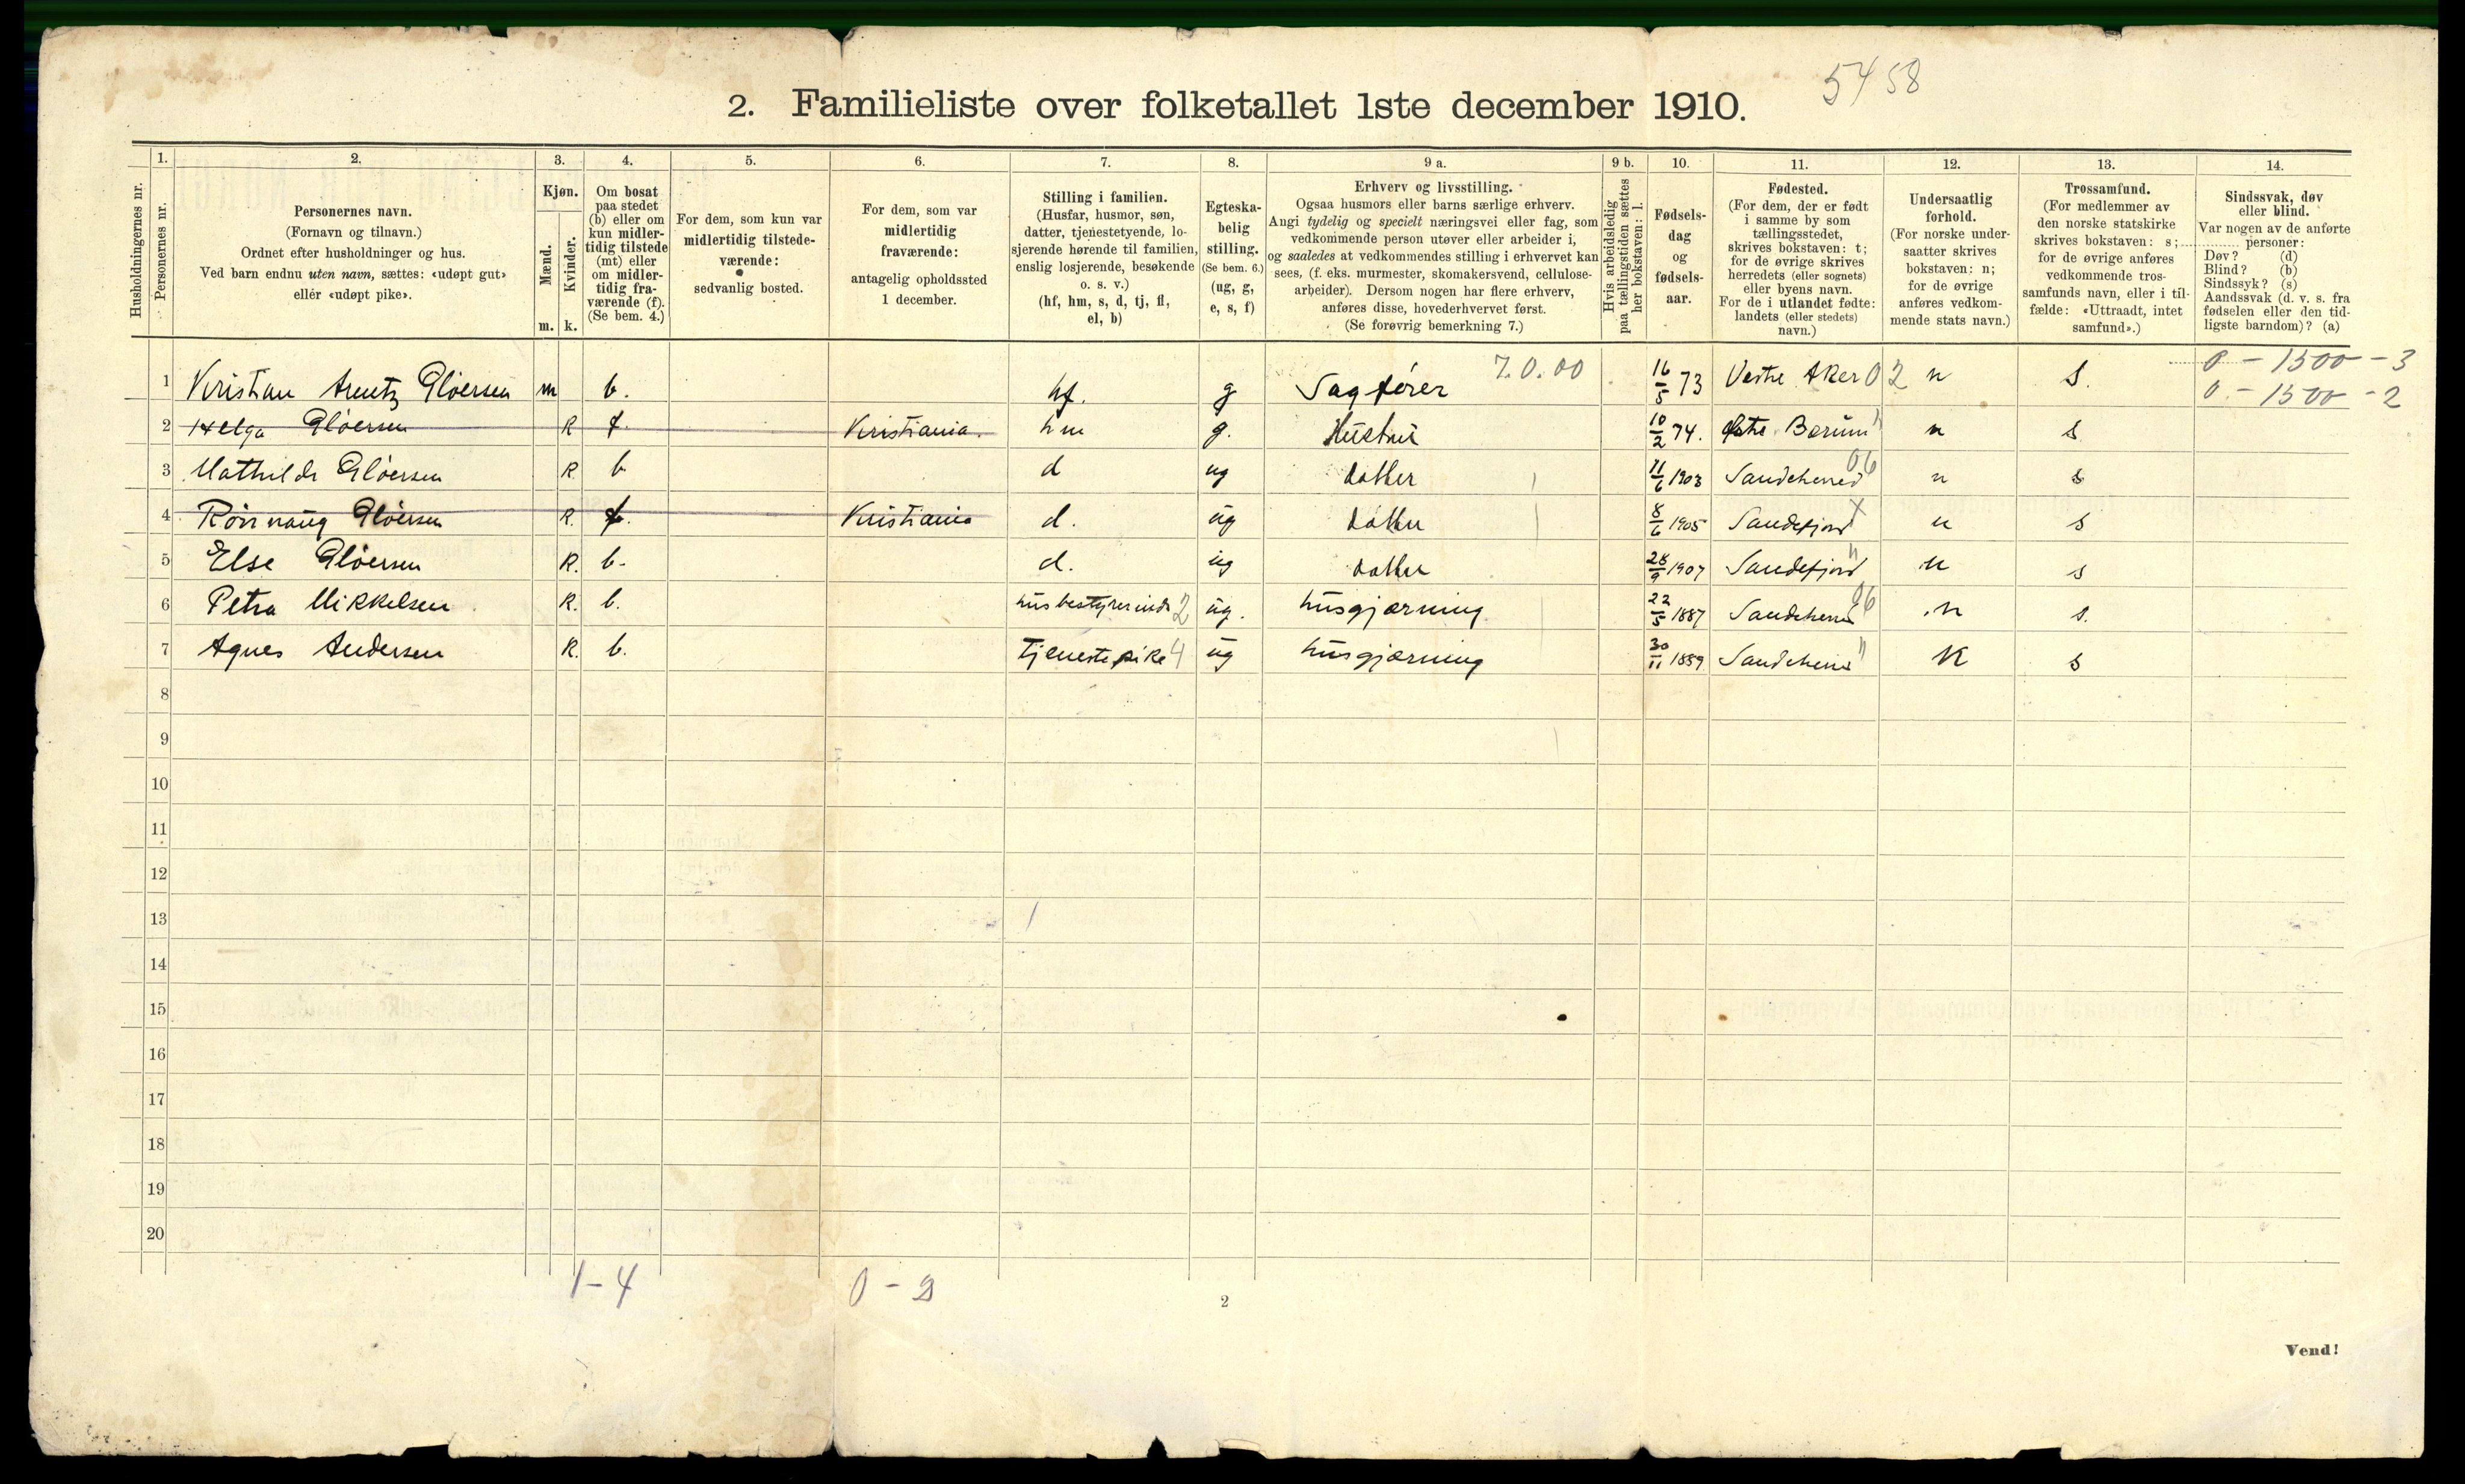 5458
2. Familieliste over folketallet 1ste december 1910.
Husholdningernes nr.
1.
Personernes nr.
2.
Personernes navn.
(Fornavn og tilnavn.)
Ordnet efter husholdninger og hus.
Ved barn endnu uten navn, sættes: «udøpt gut»
eller «udøpt pike».
3.
Kjøn.
Mænd.
Kvinder.
m. k.
4.
Om bosat
paa stedet
(b) eller om
kun midler-
tidig tilstede
(mt) eller
om midler-
tidig fra-
værende (f).
(Se bem. 4.)
5.
For dem, som kun var
midlertidig tilstede-
værende:
sedvanlig bosted.
6.
For dem, som var
midlertidig
fraværende:
antagelig opholdssted
1 december.
7.
Stilling i familien.
(Husfar, husmor, søn,
datter, tjenestetyende, lo-
sjerende hørende til familien,
enslig losjerende, besøkende
o. s. v.)
(hf, hm, s, d, tj, fl,
el, b)
8.
Egteska-
belig
stilling.
(Se bem. 6.)
(ug, g,
e, s, f)
9 a.
Erhverv og livsstilling.
Ogsaa husmors eller barns særlige erhverv.
Angi tydelig og specielt næringsvei eller fag, som
vedkommende person utøver eller arbeider i,
og saaledes at vedkommendes stilling i erhvervet kan
sees, (f. eks. murmester, skomakersvend, cellulose-
arbeider). Dersom nogen har flere erhverv,
anføres disse, hovederhvervet først.
(Se forøvrig bemerkning 7.)
9 b.
Hvis arbeidsledig
paa tællingstiden sættes
her bokstaven: l.
10.
Fødsels-
dag
og
fødsels-
aar.
11.
Fødested.
(For dem, der er født
i samme by som
tællingsstedet,
skrives bokstaven: t;
for de øvrige skrives
herredets (eller sognets)
eller byens navn.
For de i utlandet fødte:
landets (eller stedets)
navn.)
12.
Undersaatlig
forhold.
(For norske under-
saatter skrives
bokstaven: n;
for de øvrige
anføres vedkom-
mende stats navn.)
13.
Trossamfund.
(For medlemmer av
den norske statskirke
skrives bokstaven: s;
for de øvrige anføres
vedkommende tros-
samfunds navn, eller i til-
fælde: «Uttraadt, intet
samfund».)
14.
Sindssvak, døv
eller blind.
Var nogen av de anførte
personer:
Døv? (d)
Blind? (b)
Sindssyk? (s)
Aandssvak (d. v. s. fra
fødselen eller den tid-
ligste barndom)? (a)
1 Kristian Arentz Gløersen m b. hf. g Sagfører 7.0.00 16/5 73 Vestre Aker 02 n s. 0 - 1500 - 3
0 - 1500 - 2
2 Helga Gløersen k f. Kristiania. hm g. Hustru 10/2 74. Østre Bærum " n s
3 Mathilde Gløersen k b d ug datter 11/6 1903 Sandeherred 06 n s
4 Rønnaug Gløersen k. f. Kristiania d. ug datter 8/6 1905 Sandefjord x n s
5 Else Gløersen k. b. d. ug datter 28/9 1907 Sandefjord " n s
6 Petra Mikkelsen k. b. husbestyrerinde 2 ug. husgjærning 22/5 1887 Sandeherred 06 n s.
7 Agnes Andersen k. b. Tjenestepike 4 ug husgjærning 30/11 1889 Sandeherred " n s
8
9
10
11
12
13
14
15
16
17
18
19
20
1-4 0-2
2
Vend!